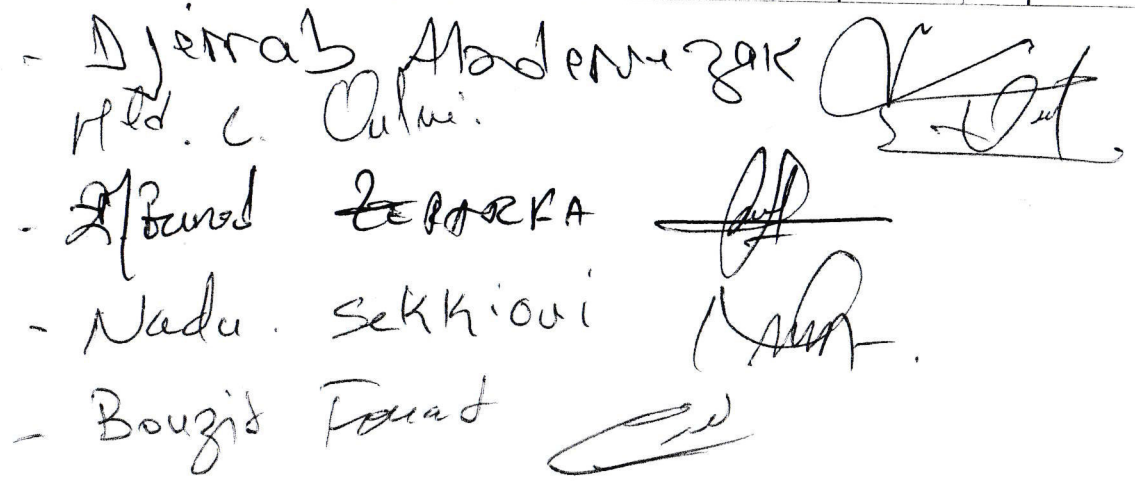 - Djerrab Abderrezak
Med. C. Oulmi.
- ZERARKA
- Nadu. Sekkioui
- Bouzid Fouad